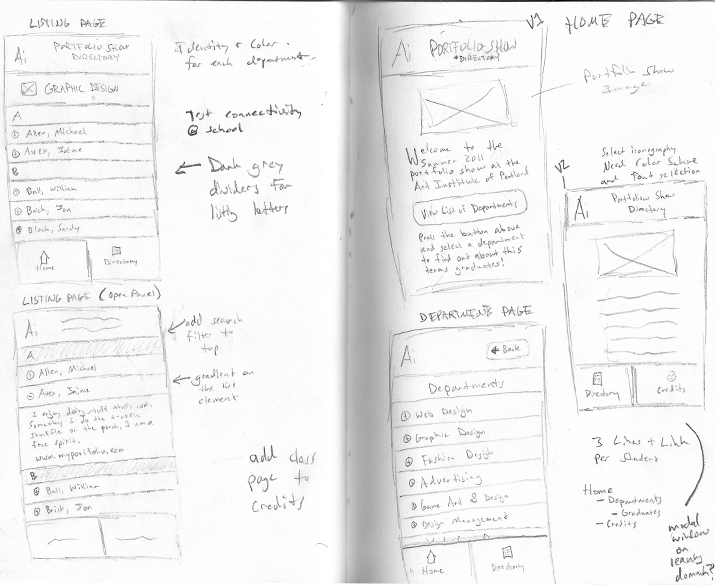 LISTING PAGE
Ai
PORTFOLIO SHOW
DIRECTORY
GRAPHIC DESIGN
A
Allen, Michael
Avex, Jaime
B
Ball, William
Bach, Jon
Bloch, Sandy
Home
Directory
Identity & Color
for each department.
Test connectivity
@ school
Dark grey
dividers for
listing letters
LISTING PAGE (Open Panel)
Ai
A
Allen, Michael
Avex, Jaime
I enjoy doing
Someday I do the
shuffle or the pooch, I am a
free spirit.
www.myportfolio.com
B
Ball, William
Brick, Jon
add search
filter to
top
gradient on
the list
element
add class
page to
credits
V1
HOME PAGE
Ai
PORTFOLIO SHOW
DIRECTORY
Portfolio Show
Image
Welcome to the
Summer 2011
portfolio show at the
Art Institute of Portland
View List of Departments
Press the button above
and select a department
to find out about this
terms graduates!
Select iconography
Need Color Scheme
and Font selection
V2
Ai
Portfolio Show
Directory
Directory
Credits
DEPARTMENTS PAGE
Ai
Back
Departments
Web Design
Graphic Design
Fashion Design
Advertising
Game Art & Design
Design Management
Home
Directory
3 Lines + Link
per student
Home
– Departments
– Graduates
– Credits
modal
window
on
leaving
domain?